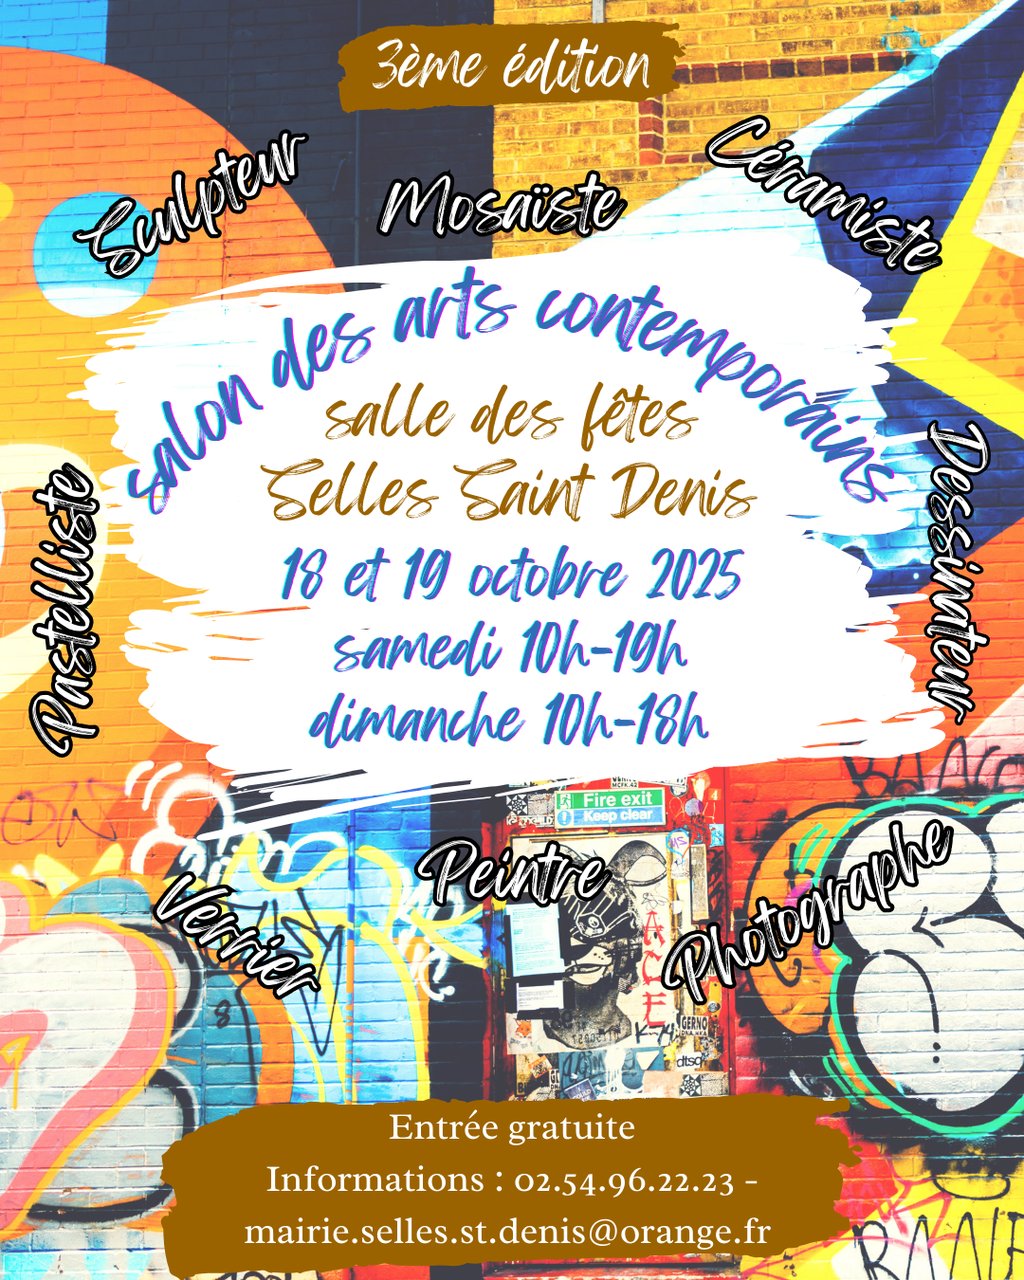 3ème édition
Sculpteur
Mosaïste
Céramiste
salon des arts contemporains
salle des fêtes
Selles Saint Denis
18 et 19 octobre 2025
samedi 10h-19h
dimanche 10h-18h
Pastelliste
Dessinateur
Fire exit
Keep clear
Verrier
Peintre
Photographe
GERNO
Entrée gratuite
Informations : 02.54.96.22.23 -
mairie.selles.st.denis@orange.fr